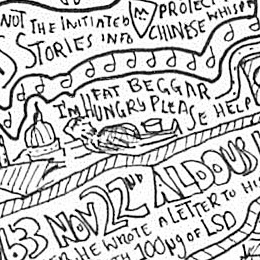 NOT THE INITIATED
PROTECT
STORIES INTO
CHINESE WHISP
FAT BEGGAR
I'M HUNGRY PLEASE HELP
63 NOV 22ND ALDOUS
ER HE WROTE A LETTER TO HIS
TH 100µg OF LSD